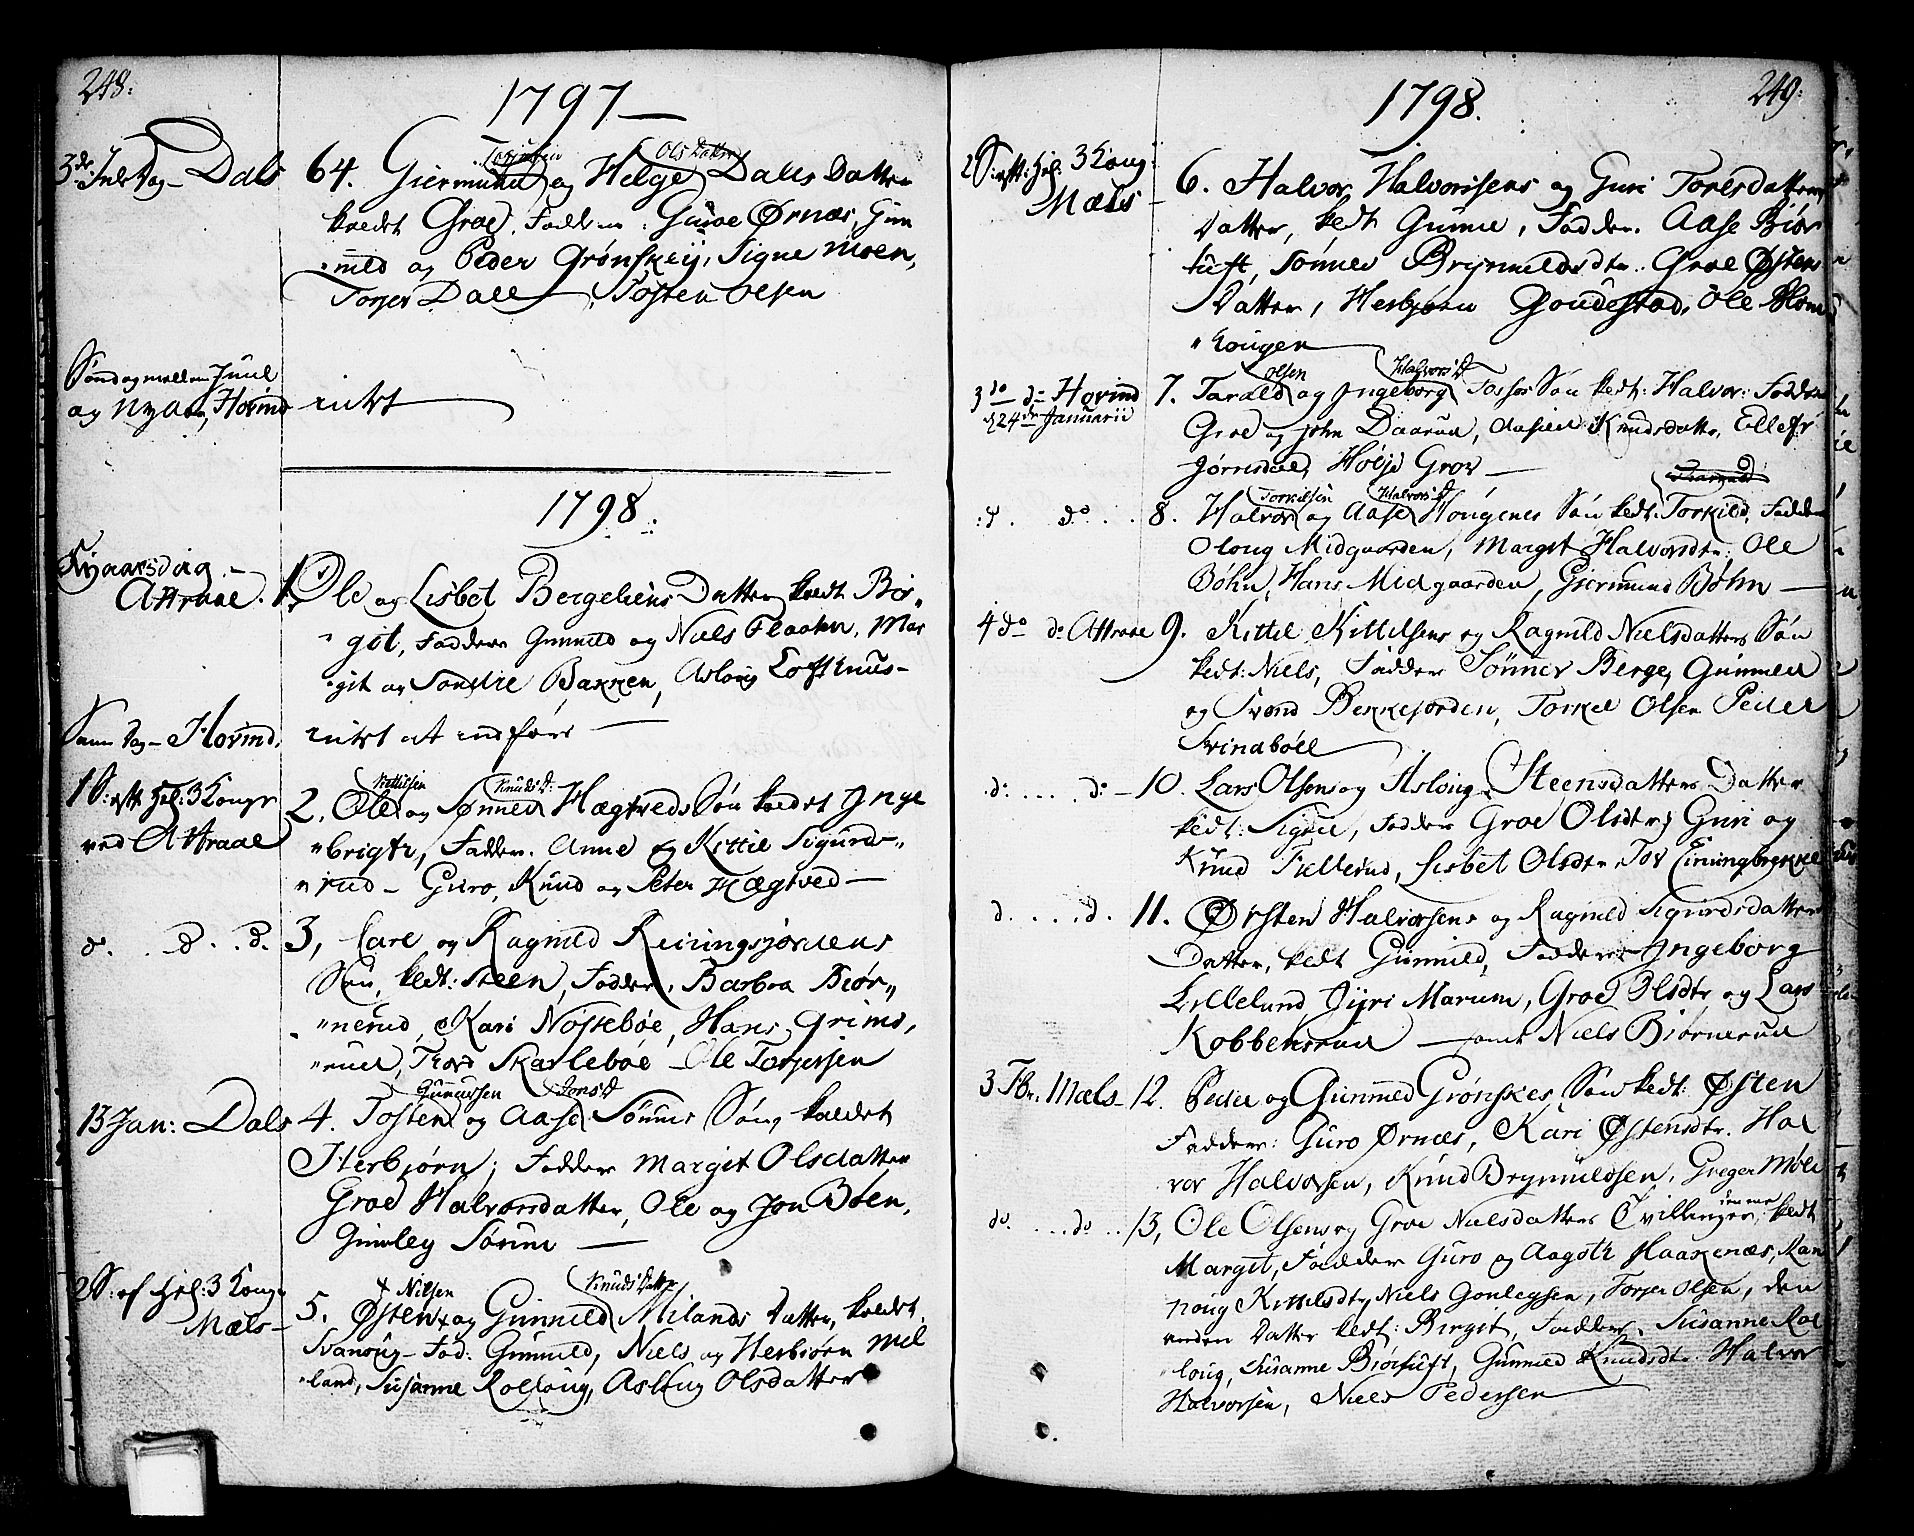 248:
1797
3de Juledag – Dals
64. Giermund og Helge Dales Datter
Ols Datter
kaldet Groe. Faddere: Guroe Ørnæs, Gun
nild og Peder Grønskeij, Signe Moen,
Torjer Dall, Tosten Olsen
Søndag mellem Juul
og Nyaar, Hovind
intet
1798
Nyaarsdag
Attraae.
1. Ole og Lisbet Bergeliens Datter kaldt Bir
git, Faddere Gunnild og Niels Flaaten, Mar
git og Sondre Bakken, Aslaug Loftshuus
Samme Dag – Hovind.
intet at indføre
1 S: eftr Hel: 3 Konger
ved Attraae
Kittilsen Knuds D:
2. Ole og Sønnev Hægtveds Søn kaldet Inge
brigt, Faddere. Anne og Kittil Sigurds
rud – Guro, Knud og Peter Hægtved
d. d. d.
3, Carl og Ragnild Reiningsjordens
Søn, kedt: Steen, Fadder. Barbra Biør
nerud, Kari Nøstebøe, Hans Grims
rued, Thord Skarlebøe – Ole Torjersen
13 Jan: Dals
Gunnersen Jons D
4. Tosten og Aase Sønnes Søn, kaldet
Herbjørn; Faddere Margit Olsdatter
Groe Halvorsdatter, Ole og Jon Bøen,
Gunley Sønne
2 S: ef Hel: 3 Konger
Mæls
Nilsen Knuds Datter
5. Østen og Gunnild Milands Datter, kaldet
Svanoug – Fad: Gunnild, Niels og Herbiørn Mil
land, Susanne Rolloug, Aslaug Olsdatter
249:
1798.
2 S: eftr: Hel: 3 Kong:
Mæls
6. Halvor Halvorsens og Guri Toresdatters
Datter, kedt Gunne, Fadder. Aase Biør
tuft, Sønnev Brynnildsdtr. Groe Østens
Datter, Herbjørn Gaudestad, Ole Blom
hougen
3do do Hovind
d 24de Januarii
Olsen Halvors D
7. Tarald og Ingeborg Tossos Søn kedt: Halvor: Faddere
Groe og John Daarud, Aasne Knudsdatter, Ellef
Jørnsdal, Høije Grov
d. do
Torkilsen Halvors D
8. Halvor og Aase Hougenes Søn kedt: Torkild, Fadder
Oloug Midgaarden, Margit Halvorsdtr: Ole
Bøhn, Hans Midgaarden, Giermund Bøhn
4do do Attraae
9. Kittil Kittilsens og Ragnild Nielsdatters Søn
kedt: Niels, Fadder Sønnev Berge, Gunnild
og Svend Bekkejorden, Torkel Olsen Peder
Svinabøle
d: d:
10. Lars Olsens og Asloug Steensdatters Datter
kedt: Signe, Fadder Groe Olsdtr, Guri og
Knud Fullerud, Lisbet Olsdtr Tov Einingbrække
d. d.
11. Østen Halvorsens og Ragnild Sigurdsdatters
Datter, kedt Gunnild, Fadder Ingeborg
Lillelund Gyri Marum, Groe Olsdtr og Lars
Kobbensrud – samt Niels Biørnerud
3 Tbr. Mæls
12. Peder og Gunnild Grønskes Søn kedt: Østen
Fadder: Guro Ørnæs, Kari Østensdtr. Hal
vor Halvorsen, Knud Brynnuldsen, Greger Møli
do. do
13, Ole Olsens og Groe Nielsdatters Tvillinger, kedt
Margit, Fadder Guro og Aagoth Haakenæs, Ran
noug Kittilsdtr, Niels Gonleysen, Torjer Olsen, den
anden Datter kedt: Birgit, Fadder. Susanne Rol
loug, Susanne Biørtuft, Gunnild Knudsdtr Halvor
Halvorsen, Niels Pedersen